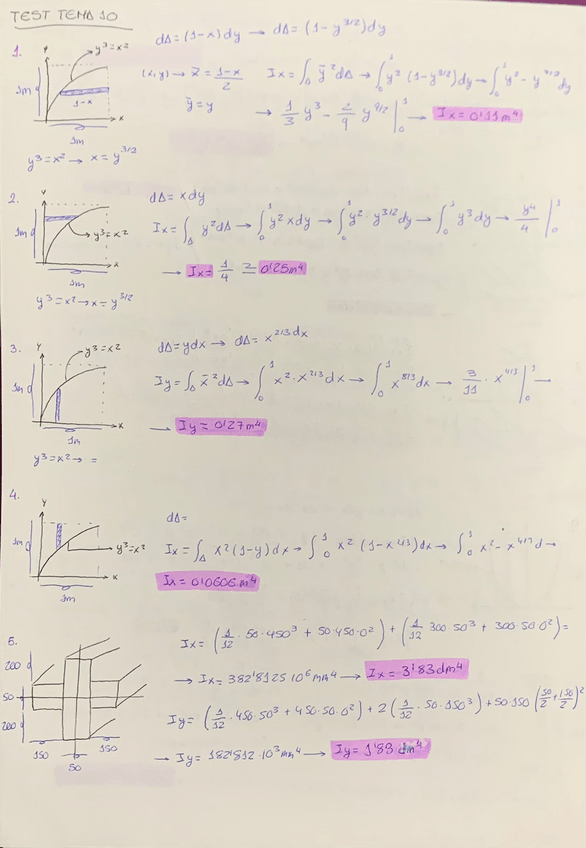 TEST TEMA 10
1.
y
y³=x²
1m
1-x
x
1m
y³=x² → x=y^{3/2}
dA=(1-x)dy → dA=(1-y^{3/2})dy
(x,y) → x̄=\frac{1-x}{2}
ȳ=y
Ix=∫_0 ȳ²dA → ∫_0^1 y²(1-y^{3/2})dy → ∫_0^1 y²-y^{7/2}dy
→ \frac{1}{3}y³-\frac{2}{9}y^{9/2}|_0^1 → Ix=0'11m⁴
2.
y
1m
y³=x²
x
1m
y³=x² → x=y^{3/2}
dA=xdy
Ix=∫_A y²dA → ∫_0^1 y²xdy → ∫_0^1 y²·y^{3/2}dy → ∫_0^1 y³dy → \frac{y⁴}{4}|_0^1
→ Ix=\frac{1}{4}=0'25m⁴
3.
y
y³=x²
1m
x
1m
y³=x² → =
dA=ydx → dA=x^{2/3}dx
Iy=∫_A x̄²dA → ∫_0^1 x²·x^{2/3}dx → ∫_0^1 x^{8/3}dx → \frac{3}{11}·x^{11/3}|_0^1 →
→ Iy=0'27m⁴
4.
y
1m
y³=x²
x
1m
dA=
Ix=∫_A x²(1-y)dx → ∫_0^1 x²(1-x^{2/3})dx → ∫_0^1 x²-x^{4/3}d →
Ix=0'0606m⁴
5.
200
50
200
150
150
50
Ix=(\frac{1}{12}·50·450³+50·450·0²)+(\frac{1}{12}300·50³+300·50·0²)=
→ Ix=382'8125·10⁶mm⁴ → Ix=3'83dm⁴
Iy=(\frac{1}{12}·450·50³+450·50·0²)+2(\frac{1}{12}·50·150³)+50·150(\frac{50}{2}+\frac{150}{2})²
→ Iy=182'812·10³mm⁴ → Iy=1'83dm⁴